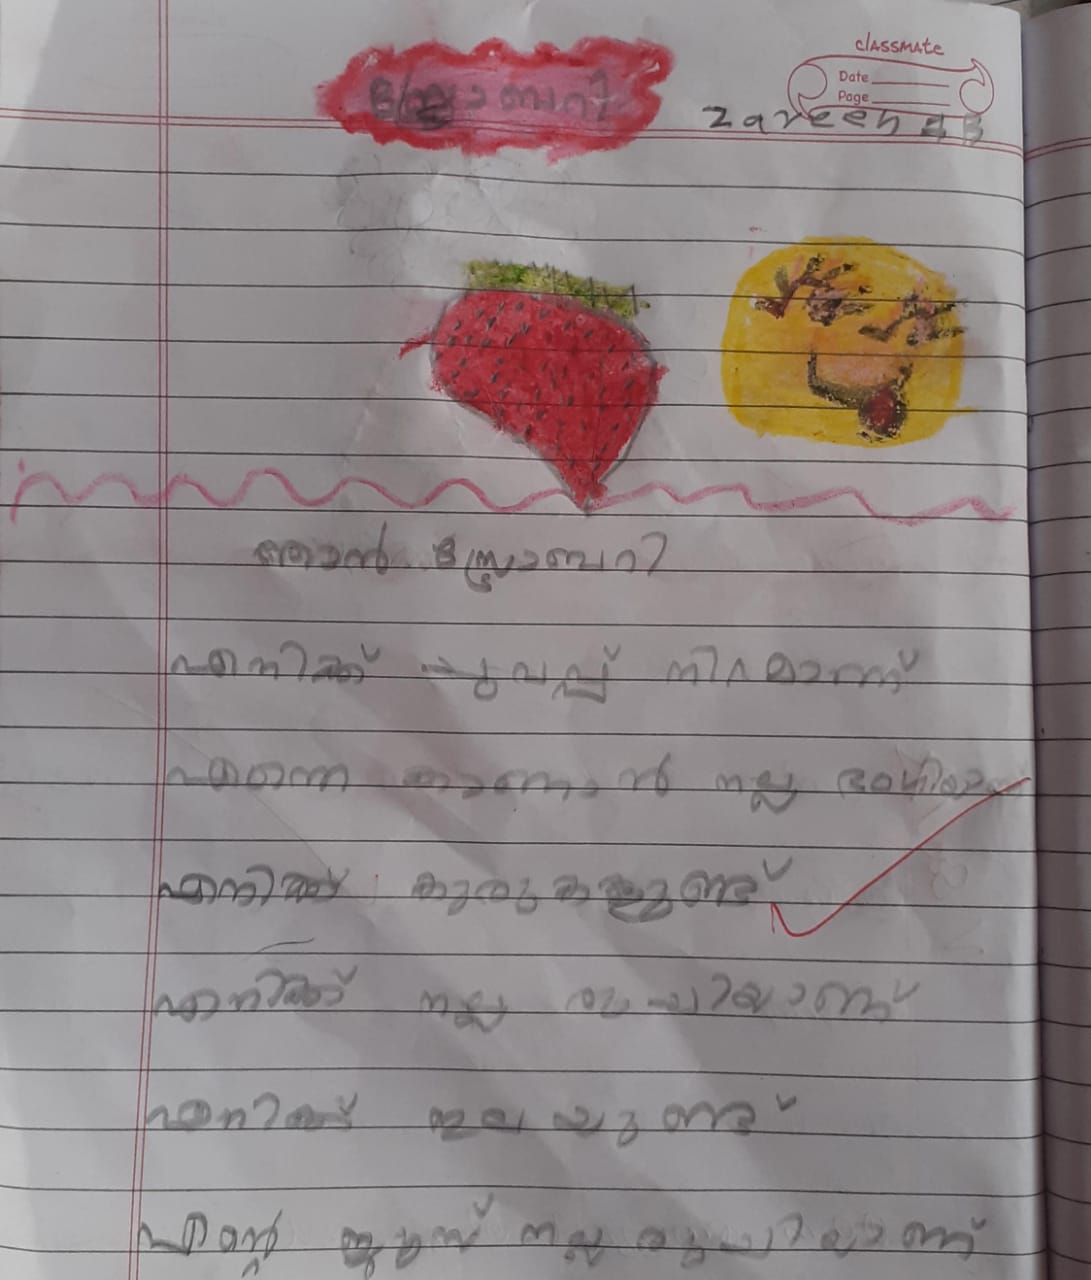 classmate
Date
Page
zareen 4 B
ഞാൻ സ്ട്രോബറി
എനിക്ക് ചുവപ്പ് നിറമാണ്
എന്നെ കാണാൻ നല്ല ഭംഗിയാണ്
എനിക്ക് കുരുകളുണ്ട്
എനിക്ക് നല്ല രുചിയാണ്
എനിക്ക് ഇലയുണ്ട്
എന്റെ ജൂസ് നല്ല രുചിയാണ്